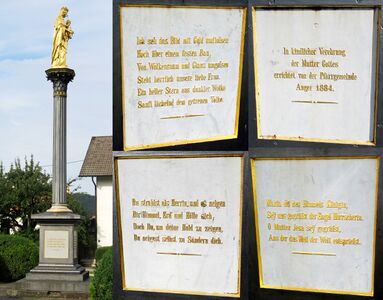 Ich seh' das Bild mit Gold umflossen
Hoch über einem festen Bau,
Von Wolkensaum und Glanz umgossen
Steht herrlich unsere liebe Frau.
Ein heller Stern aus dunkler Wolke
Sanft lächelnd dem getreuen Volke.
In kindlicher Verehrung
der Mutter Gottes
errichtet von der Pfarrgemeinde
Anger 1884.
Du strahlst als Herrin, und es neigen
Dir Himmel, Erd' und Hölle sich,
Doch Du, um deine Huld zu zeigen,
Du neigest selbst zu Sündern dich.
Maria, die des Himmels Königin,
Sey uns gegrüßt der Engel Herrscherin.
O Mutter Jesu sey gegrüßt,
Aus der das Heil der Welt entsprießt.